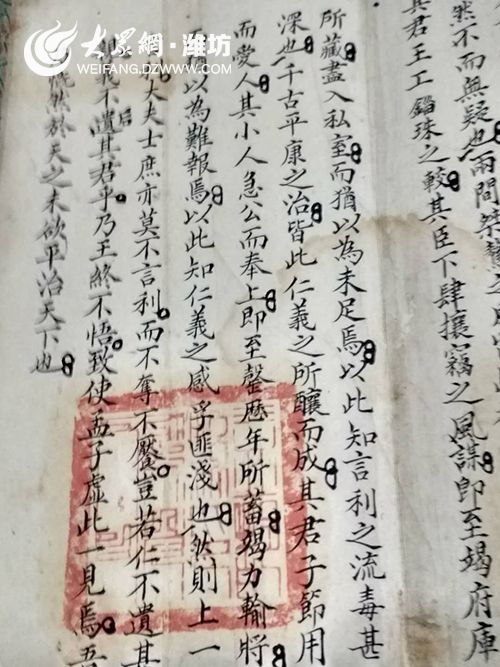 大眾網·潍坊
WEIFANG.DZWWW.COM
然不而無疑也兩間
其君王工錙珠之較其臣下肆攘竊之風謀即至竭府庫
所藏盡入私室而猶以為未足焉以此知言利之流毒甚
深也千古平康之治皆此仁義之所釀而成其君子節用
而愛人其小人急公而奉上即至罄歷年所蓄竭力輸將
以為難報焉以此知仁義之感孚匪淺也然則上一
大夫士庶亦莫不言利而不奪不饜豈若仁不遺其
義不遺其后君乎乃王終不悟致使孟子虛此一見焉吾
慨然於天之未欲平治天下也